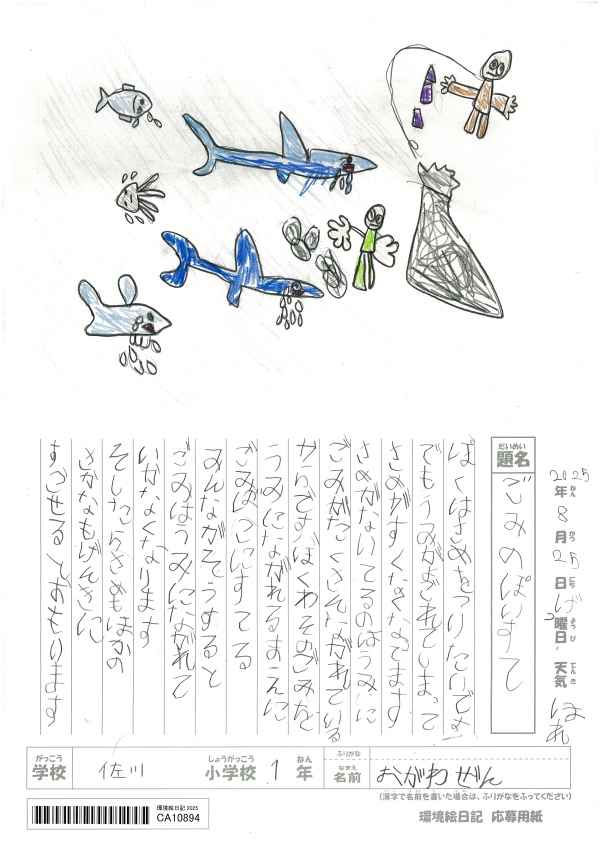 2025年ねん8月がつ25日にちげつ曜日ようび、天気てんきはれ
だいめい
題名
ごみのぽいすて
ぼくはさめをつりたいです
でもうみがよごれてしまって
さめがすくなくなてます
さめがないてるのはうみに
ごみがたくさんながれている
からですぼくわそのごみを
うみにながれるまえに
ごみばこにすてる
みんながそうすると
ごみはうみにながれて
いかなくなります
そしたらさめもほかの
さかなもげんきに
すごせるとおもいます
がっこう しょうがっこう ねん ふりがな
学校 佐川 小学校 1 年 なまえ 名前 おがわぜん
(漢字で名前を書いた場合は、ふりがなをふってください)
環境絵日記2025
CA10894
環境絵日記 応募用紙